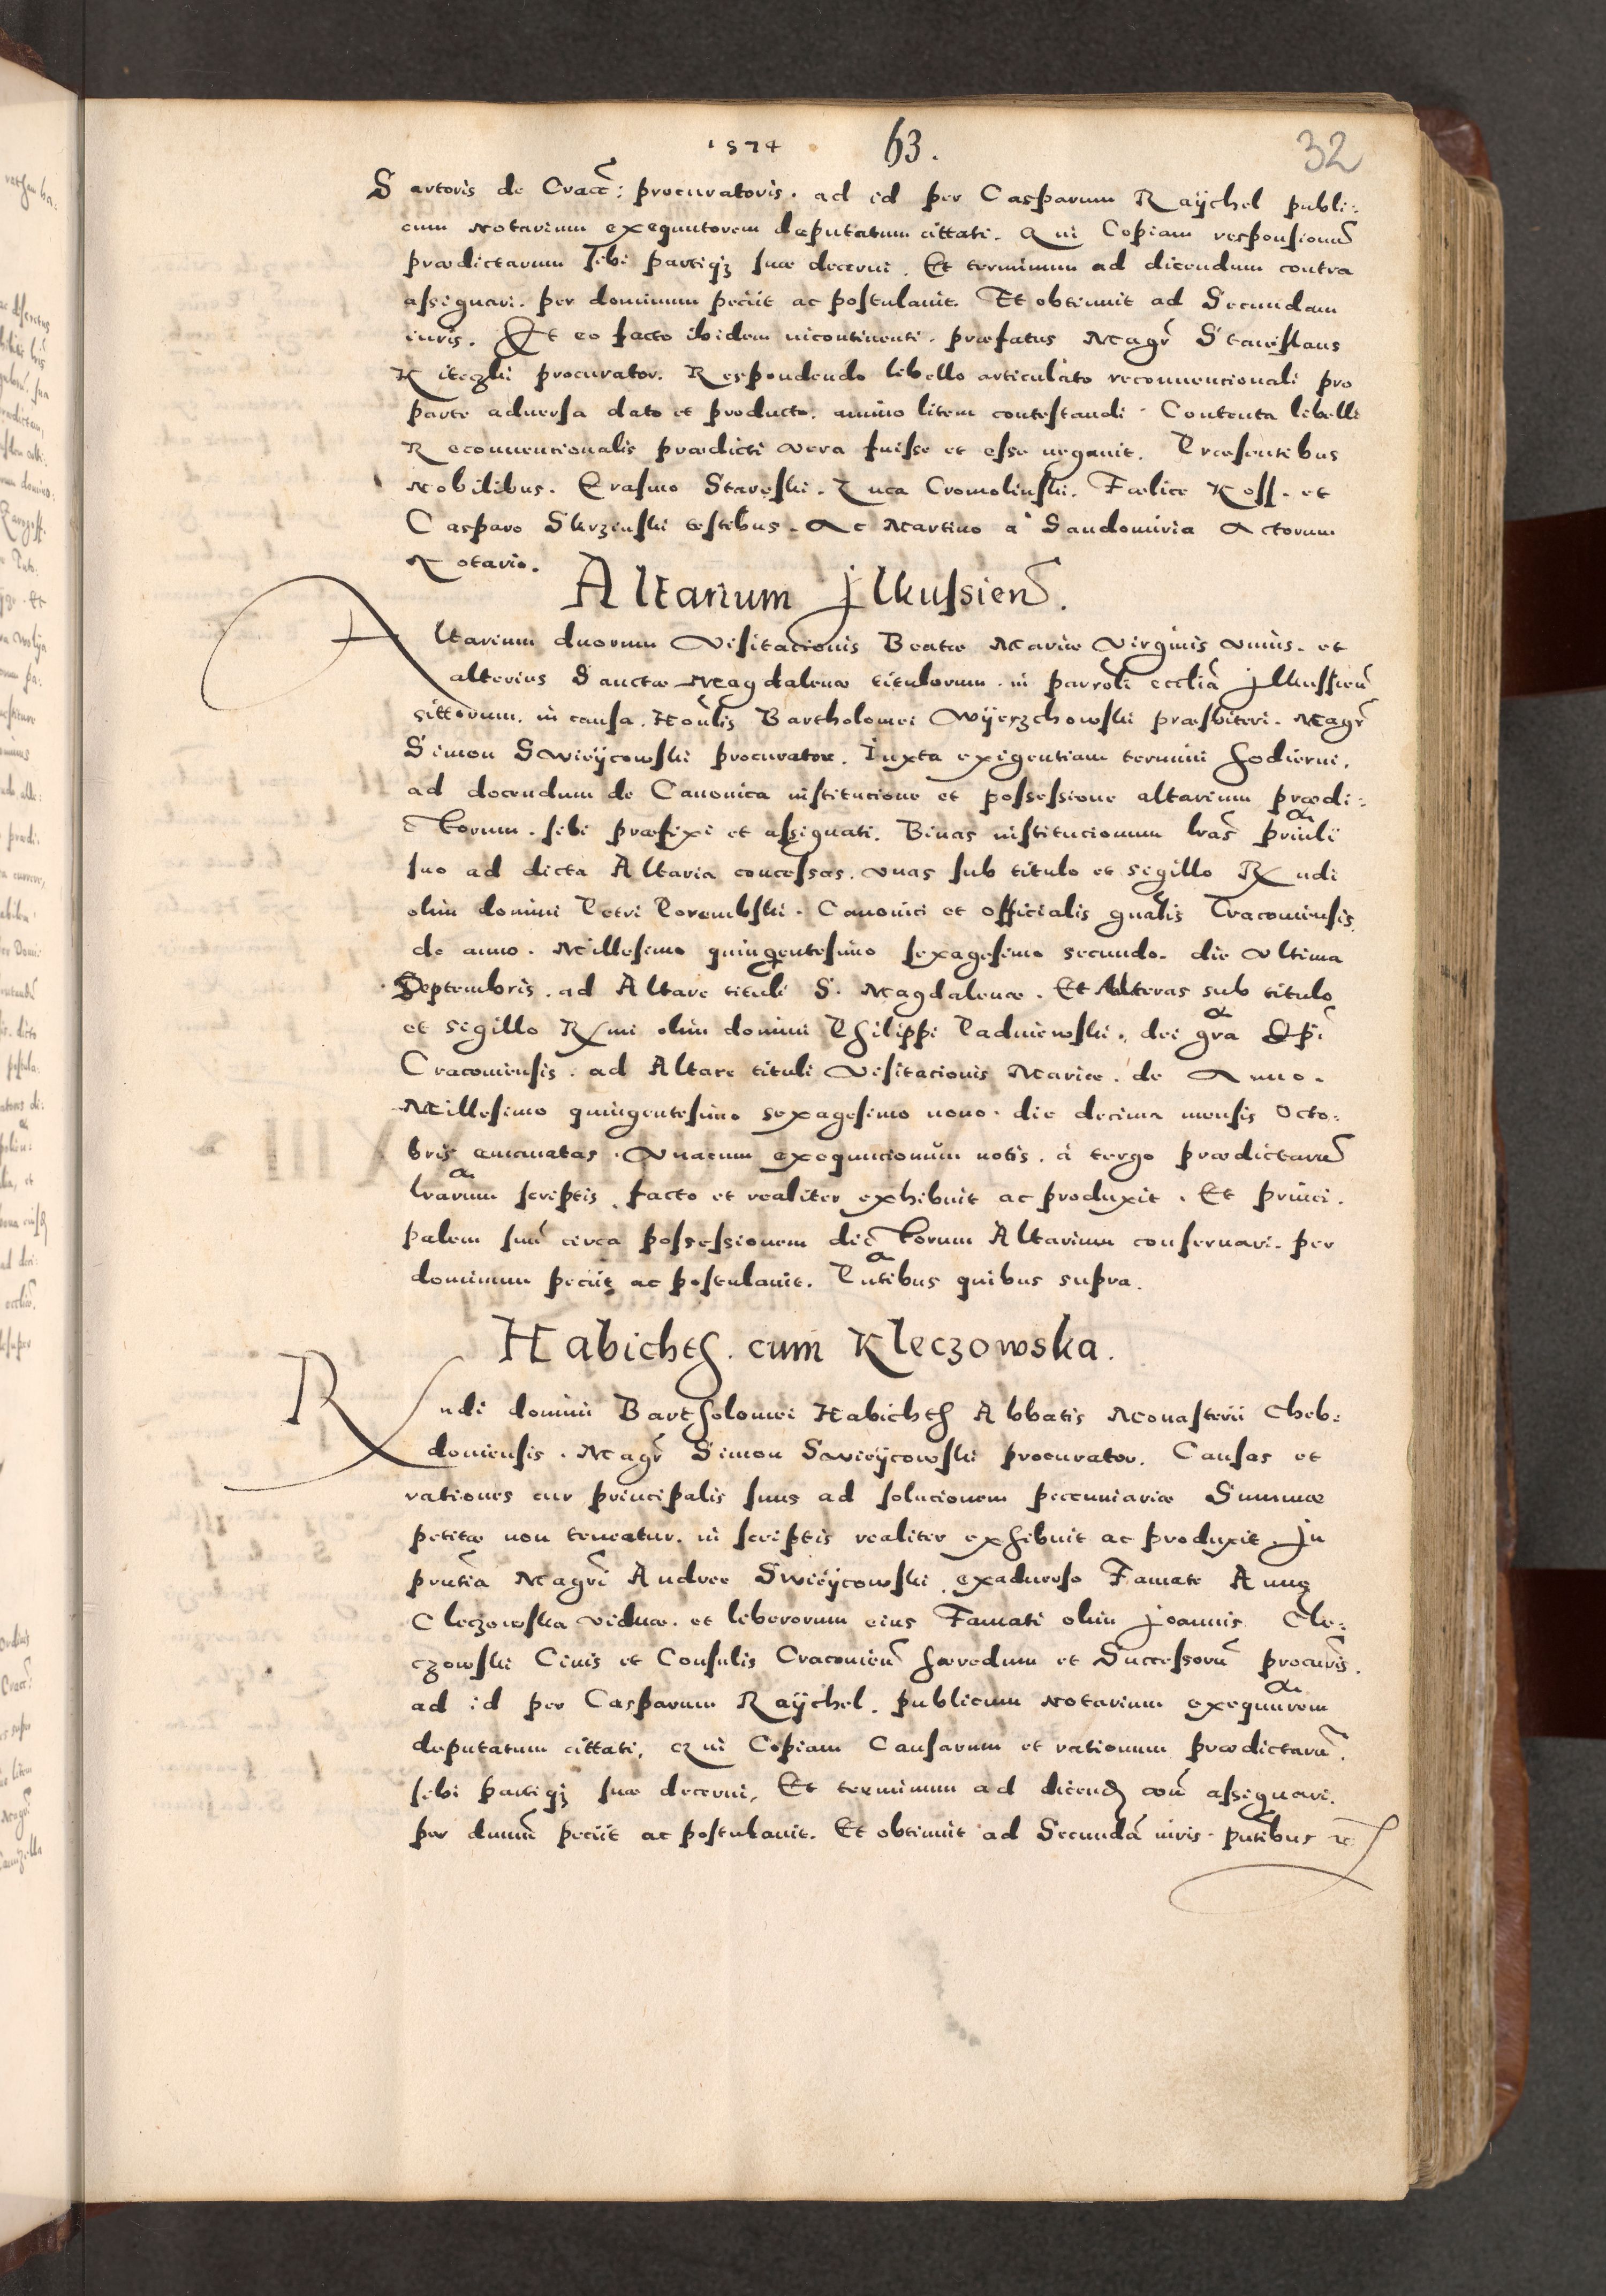 1574 63. 32
Sartoris de Cracˉ: procuratoris. ad id per Casparum Raÿchel publi:
cum Notarium exequutorem deputatum cittati. Qui Copiam responsionuˉ
prædictarum sibi partiqʒ suæ decerni. Et terminum ad dicendum contra
assignari. per dominum peciit ac postulauit. Et obtinuit ad Secundam
iuris. Et eo facto ibidem incontinenti. præfatus Magr̃ Stanislaus
Kiteczki procurator. Respondendo libello articulato reconuencionali pro
parte aduersa dato et producto. animo litem contestandi. Contenta libelli
Reconuencionalis prædicti vera fuisse et esse negauit. Præsentibus
Nobilibus. Erasmo Stareski. Luca Cromolinski. Fœlice Koss. et
Casparo Skrzenski testibus. Ac Martino à Sandomiria Actorum
Notario.
Altarium Jlkussien̄.
Altarium duorum Visitacionis Beatæ Mariæ Virginis vnius. et
alterius Sanctæ Magdalenæ titulorum. in parrōli ecclīa Jlkussien̄
sittorum. in causa. Hoñlis Bartholomei Wÿerzchowski præsbiteri. Magr̃
Simon Swieÿcowski procurator. Iuxta exigentiam termini hodierni.
ad docendum de Canonica institucione et possessione altarium prædi:
ctorum. sibi præfixi et assignati. Binas institucionum lrās prin̄li
suo ad dicta Altaria concessas. vnas sub titulo et sigillo Rndi
olim domini Petri Porembski. Canonici et officialis gnālis Cracouiensis
de anno. Millesimo quingentesimo sexagesimo secundo. die vltima
Septembris. ad Altare tituli S. Magdalenæ. Et Alteras sub titulo
et sigillo Rmi olim domini Philippi Padniewski. dei grā Epī
Cracouiensis. ad Altare tituli Visitacionis Mariæ. de Anno.
Millesimo quingentesimo sexagesimo nono. die decima mensis Octo:
bris emanatas. Vnacum exequucionum notis. à tergo prædictarū
lrārum scriptis. facto et realiter exhibuit ac produxit. Et princi.
palem suū circa possessionem dictorum Altarium conseruari. per
dominum peciit ac postulauit. Pn̄tibus quibus supra.
Habichth. cum Kleczowska.
Rndi domini Bartholomei Habichth Abbatis Monasterii Cheb:
douiensis. Magr̃ Simon Swieÿcowski procurator. Causas et
rationes cur principalis suus ad solucionem pecuniariæ Summæ
petitæ non teneatur. in scriptis realiter exhibuit ac produxit. Jn
pn̄tia Magr̃i Andree Swieÿcowski. exaduerso Famatæ Annę
Cleczowska viduæ. et liberorum eius Famati olim Joannis Cle:
czowski Ciuis et Consulis Cracouien̄ hæredum et Successorū procur̄is.
ad id per Casparum Raÿchel. publicum Notarium exequut̄rem
deputatum cittati, Qui Copiam Causarum et rationum prædictarū.
sibi partiqʒ suæ decerni, Et terminum ad dicend con̄ assignari.
per dnum̄ peciit ac postulauit. Et obtinuit ad Secundā iuris. pn̄tibus &c